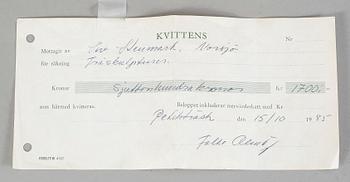 KVITTENS
Nr
Mottaget av Liv Stenmark, Norsjö
för räkning Träskulpturer.
Kronor Sjuttonhundrakronor Kr 1700:-
som härmed kvitteras. Beloppet inkluderar mervärdeskatt med Kr
den 15/10 1985
Folke